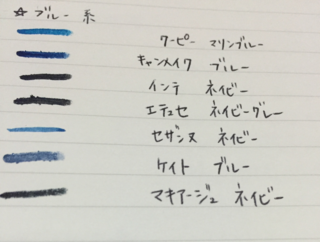 ☆ ブルー 系
クーピー マリンブルー
キャンメイク ブルー
インテ ネイビー
エテュセ ネイビーグレー
セザンヌ ネイビー
ケイト ブルー
マキアージュ ネイビー